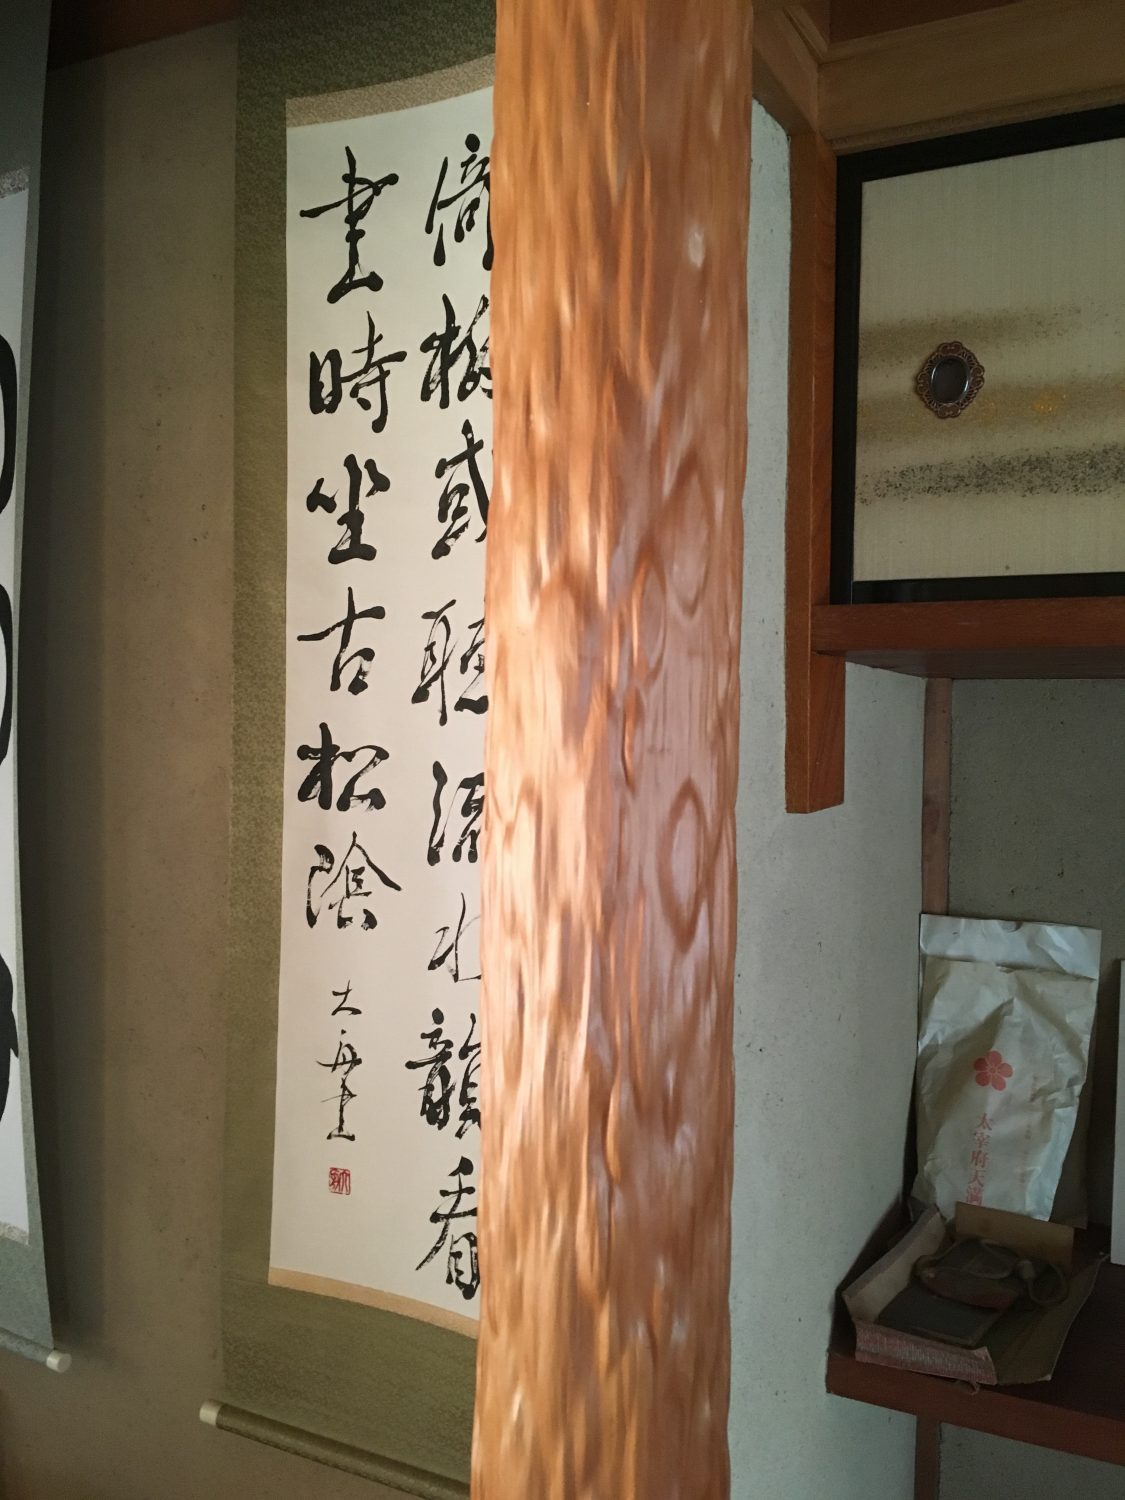 倚樹或聽流水韻看
書時坐古松陰
大舟書
太宰府天満